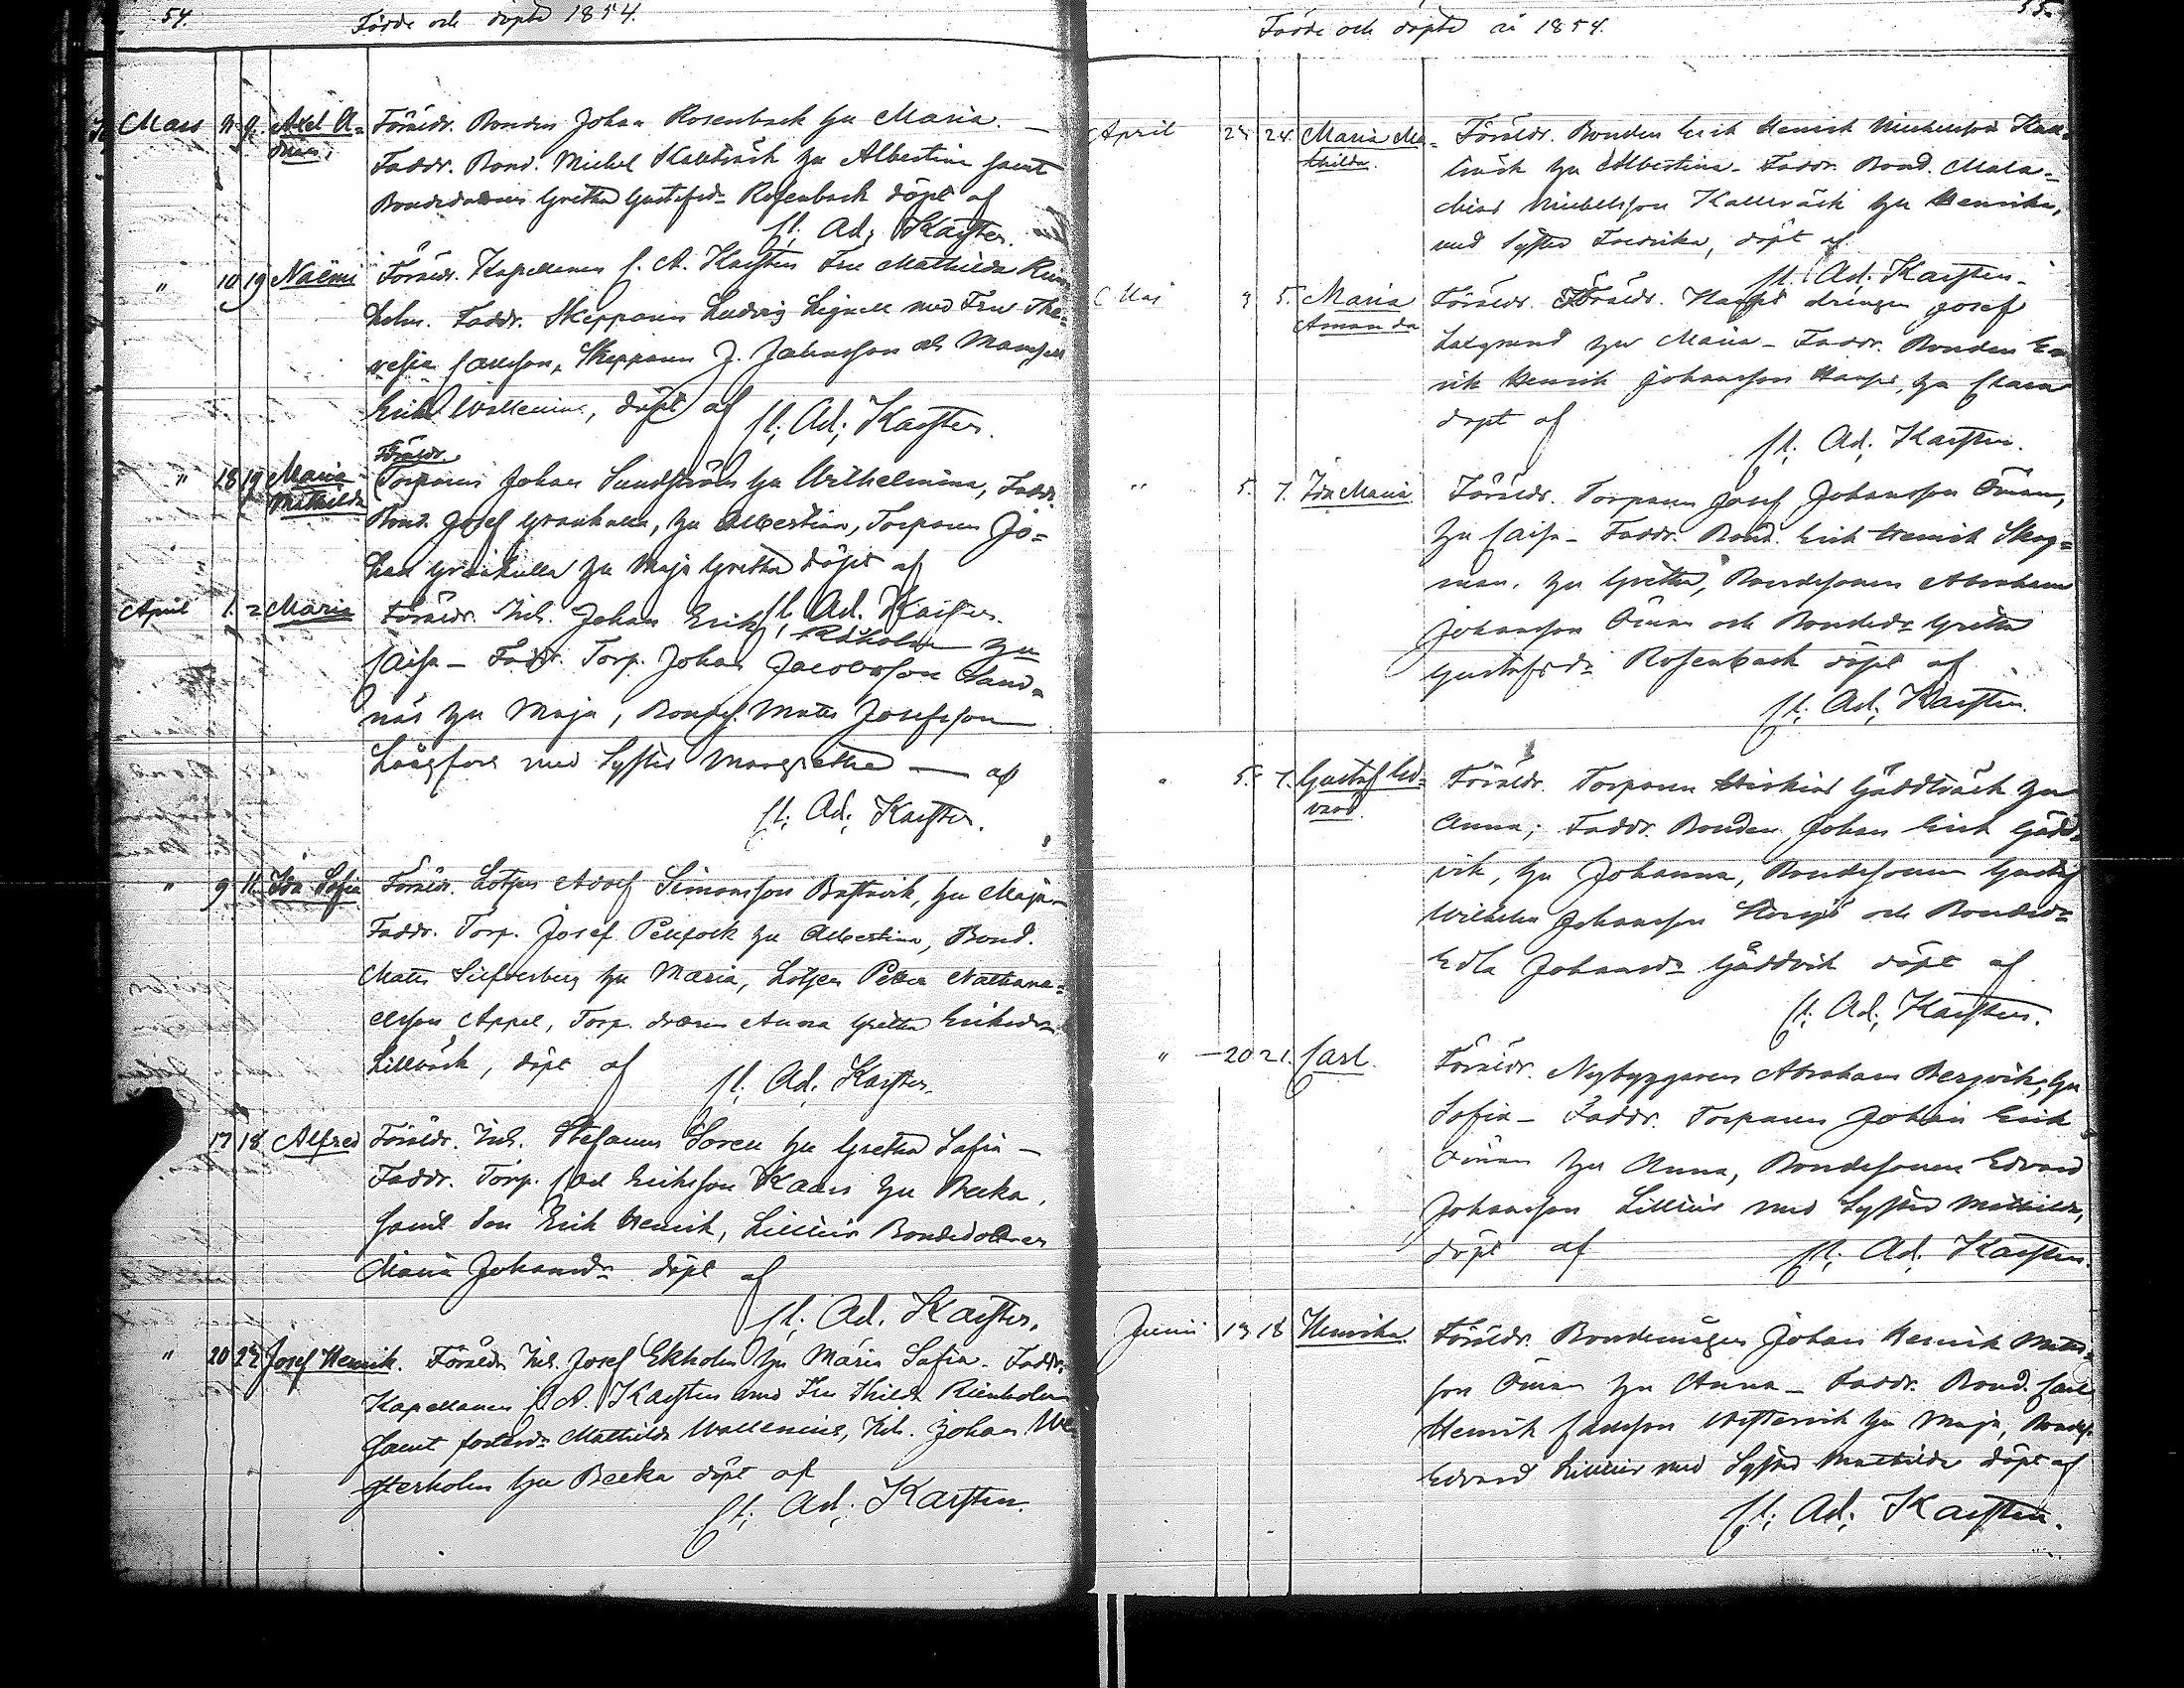 54.
Födde och döpte 1854.
Mars 9. Axel A=
Föräldr. Bonden Johan Rosenback hu Maria. —
Faddr. Bond. Michel Kallträsk hu Albertina samt
Bondedottren Gretha Gustafsd. Rosenback döpt af
C. Ad. Karsten.
" 10 19 Naëmi Föräldr. Kapellanen C. A. Karsten Fru Mathilda
holm. Faddr. Skepparen Ludvig Lignell med Fru The=
resia Carlsson, Skepparen J. Johansson och Mamsell
Wallenius, döpt af C. Ad. Karsten.
Föräldr.
" 18 19 Maria Torparen Johan Sundström hu Wilhelmina, Faddr.
Mathilda
Bond. Josef Grankulla, hu Albertina, Torparen Jo=
han Grankulla hu Maja Gretha döpt af
C. Ad. Karsten.
April 1. 2 Maria Föräldr. Inh. Johan Erik Rökholm hu
Caisa — Faddr. Torp. Johan Jacobsson Sand=
näs hu Maja, Bondes. Matts Josefsson
Långfors med Syster Margretha — af
C. Ad. Karsten.
" 9 11. Ida Sofia Föräldr. Lotsen Adolf Simonsson Bastvik, hu Maja —
Faddr. Torp. Josef Pellfolk hu Albertina, Bond.
Matts Silfverberg hu Maria, Lotsen Petter Nathana=
elsson Appel, Torp. dottren Anna Gretha Eriksd.
döpt af C. Ad. Karsten.
17 18 Alfred Föräldr. Inh. Stefanus Soren hu Gretha Sofia —
Faddr. Torp. Carl Eriksson Kaars hu Becka,
samt Son Erik Henrik, Lillsjös Bondedottren
Maria Johansd. döpt af
C. Ad. Karsten.
" 20 22 Josef Henrik. Föräldr. Inh. Josef Ekholm hu Maria Sofia. Faddr.
Kapellanen C. A. Karsten med Fru Thilda Rienholm
samt fosterd. Mathilda Wallenius, Inh. Johan We
sterholm hu Becka döpt af
C. Ad. Karsten.
55.
Födde och döpte år 1854.
April 23. 24. Maria Ma=
thilda.
Föräldr. Bonden Erik Henrik Michelsson Kall=
träsk hu Albertina — Faddr. Bond. Mala=
chias Michelsson Kallträsk hu Henrika,
med Syster Fredrika, döpt af
C. Ad. Karsten.
Maj 3 5. Maria
Amanda
Föräldr. Föräldr. drängen Josef
Laxgrund hu Maria — Faddr. Bonden E=
rik Henrik Johansson hu Clara
döpt af
C. Ad. Karsten.
" 5. 7. Ida Maria Föräldr. Torparen Josef Johansson Öman,
hu Caisa — Faddr. Bond. Erik Henrik Skog=
man, hu Gretha, Bondesonen Abraham
Johansson Öman och Bonded. Gretha
Gustafsd. Rosenback döpt af
C. Ad. Karsten.
" 5. 7. Gustaf Ed=
vard.
Föräldr. Torparen Hiskias Gäddträsk hu
Anna; Faddr. Bonden Johan Erik Gädd=
vik, hu Johanna, Bondesonen Gustaf
Wilhelm Johansson och Bonded.
Edla Johansd. Gäddvik döpt af
C. Ad. Karsten.
" — 20 21. Carl. Föräldr. Nybyggaren Abraham Bergvik, hu
Sofia — Faddr. Torparen Johan Erik
Öman hu Anna, Bondesonen Edvard
Johansson Lillsjös med Syster Mathilda,
döpt af C. Ad. Karsten.
Junii 13 18 Henrika. Föräldr. Bondemågen Johan Henrik Matts=
son Öman hu Anna — Faddr. Bond. Carl
Henrik Carlsson Westervik hu Maja, Bondes.
Edvard Lillsjös med Syster Mathilda döpt af
C. Ad. Karsten.